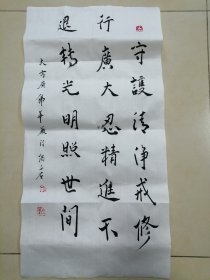 守護清淨戒修
行廣大忍精進不
退轉光明照世間
大方廣佛華嚴經